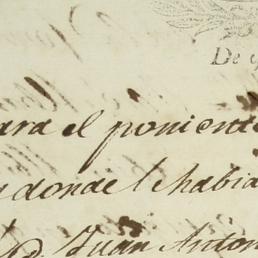 De
ara el poniente
donde le habia
Juan Anton